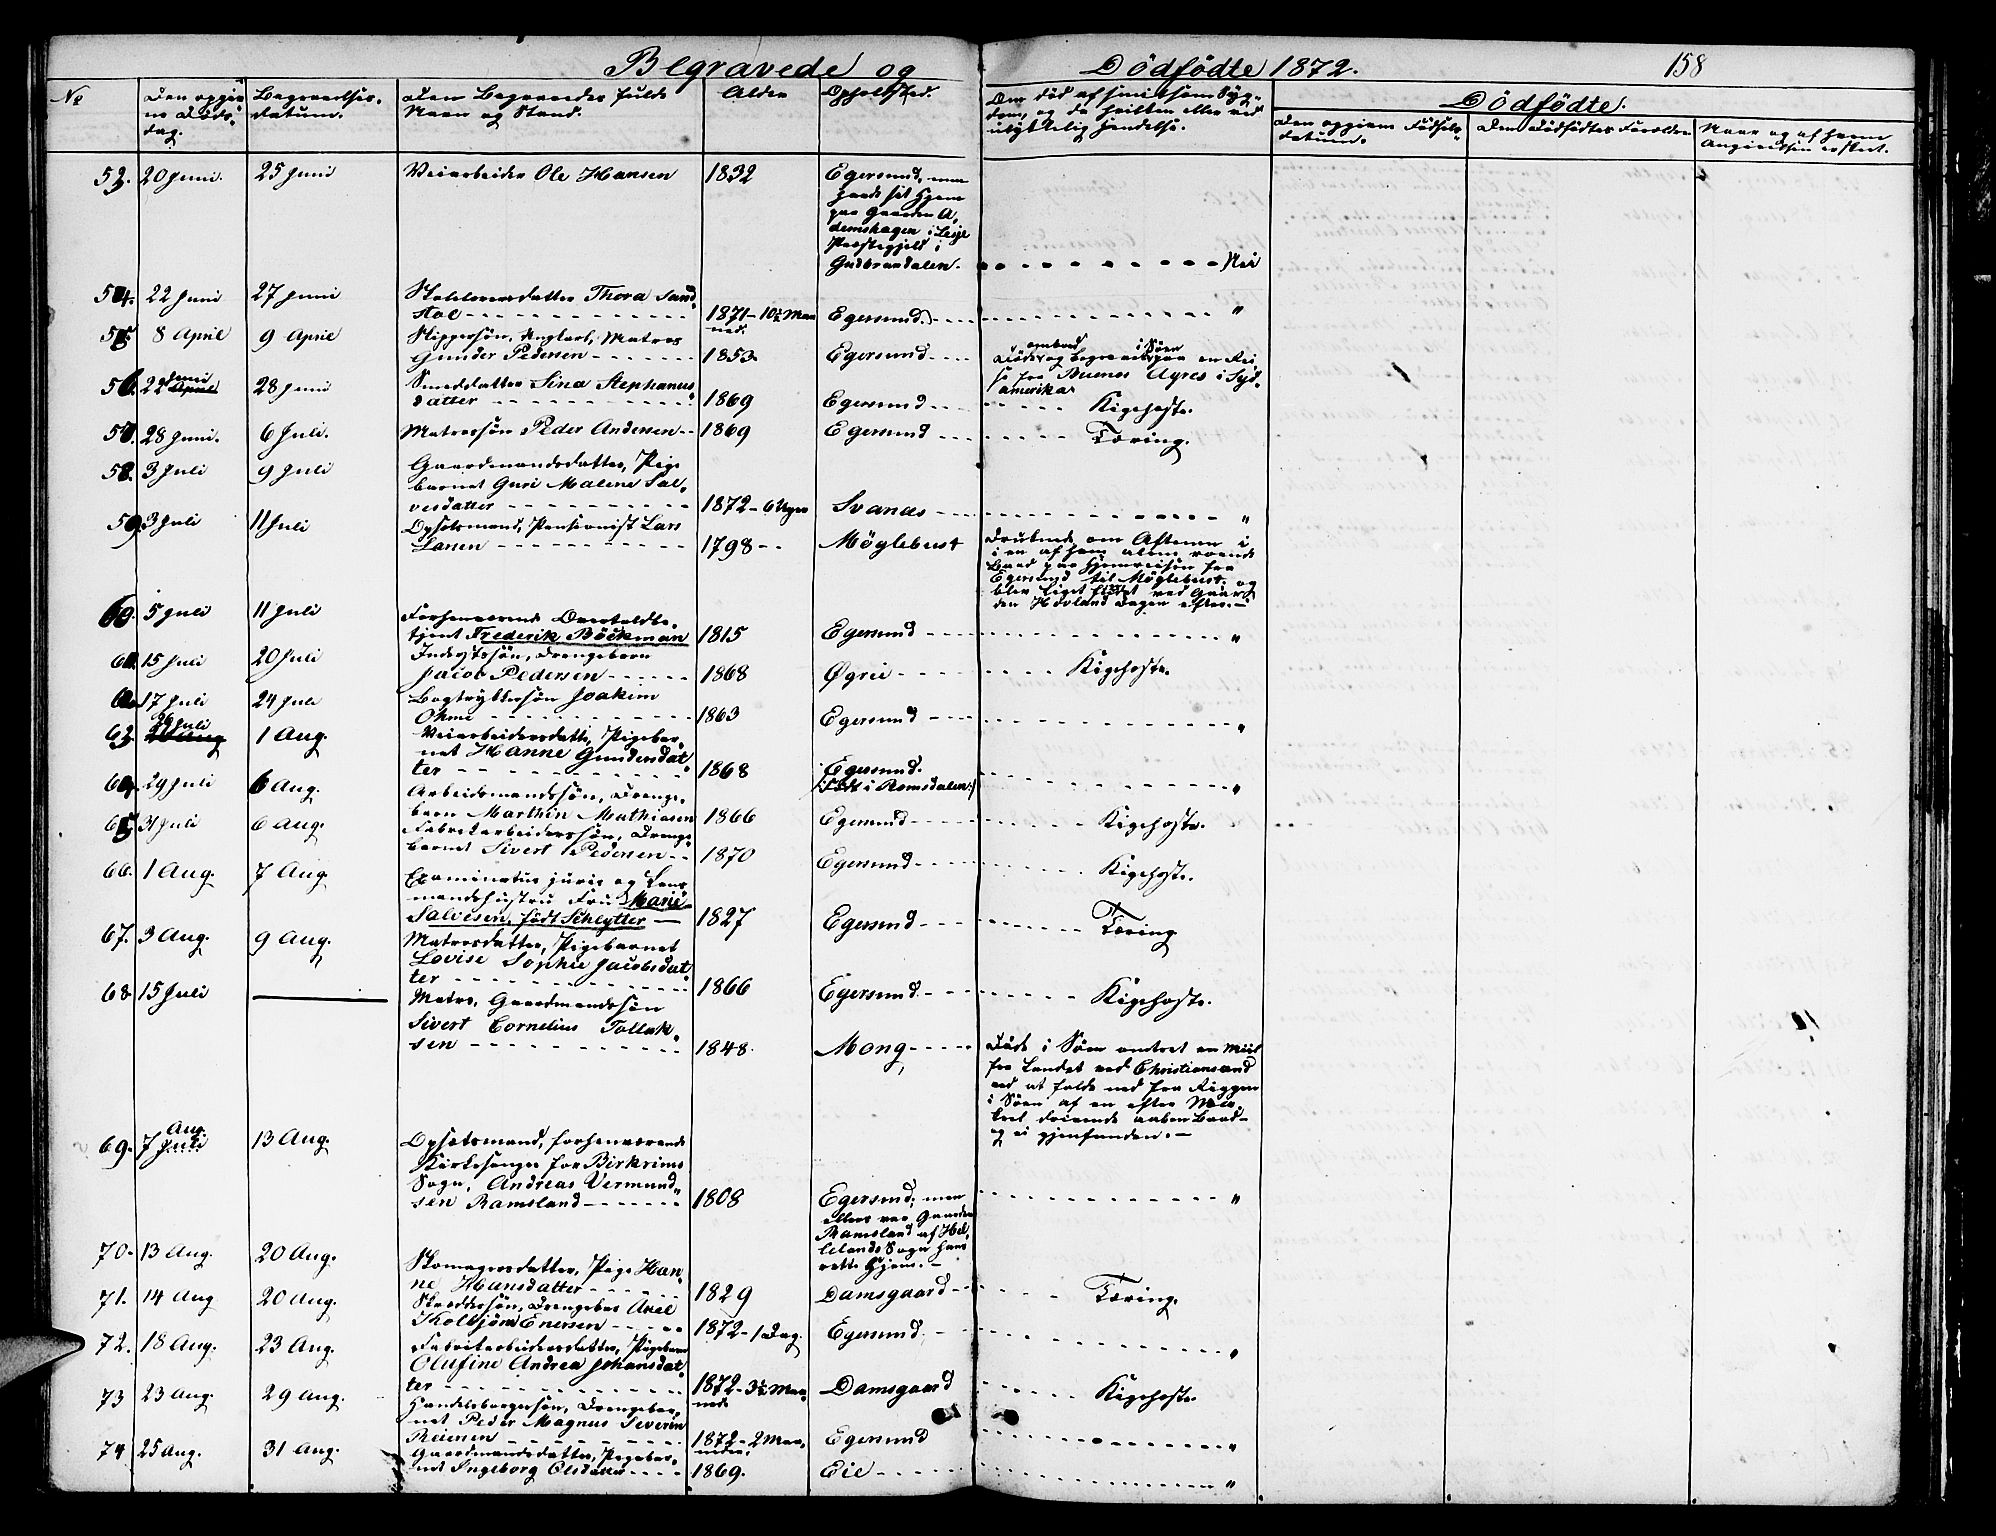 Begravede og Dödfödte 1872. 158
No
Den opgivne Döds-dag.
Begravelses-datum.
Den Begravedes fulde Navn og Stand.
Alder
Opholdsted.
Om död af smitsom Sygdom, og da hvilken eller ved ulykkelig Hændelse.
Dödfödte.
Den opgivne Födsels-datum.
Den Dödfödtes Forældre
Naar og af hvem Angivelsen er skeet.
53. 20 Juni. 25 Juni Veiarbeider Ole Hansen 1832 Egersund, men
havde sit Hjem
paa Gaarden A,
demshagen i Lesje
Præstegjeld i
Gudbrandalen. Nei
54. 22 Juni 27 Juni
Thora Sand-
stöl 1871 - 10½ Maa
ned. Egersund. "
55 8 April 9 April Skippersön, Ungkarl, Matros
Gunder Pedersen 1853 Egersund
ombord i Söen
Döde og begravet paa en Rei
se fra Buenos Ayres i Syd-
amerika
56. 22 Juni 28 Juni Smedsdatter Sina Stephanus
datter 1869 Egersund Kighoste.
57. 28 Juni. 6 Juli. Matrossön Peder Andersen 1869 Egersund Tæring.
58. 3 Juli 9 Juli Gaardmandsdatter, Pige
barnet Guri Malene Sal-
vesdatter 1872 - 6 Uger Svanæs "
59. 3 Juli 11 Juli Opsötsmand, Pensionist Lars
Larsen 1798 Möglebust
Druknede om Aftenen i
i en af ham alene roende
Baad paa Hjemreisen fra
Egersund til Möglebust og
blev Liget flödet ved Gaar
den Hovland Dagen efter.
60. 5 Juli 11 Juli Forhenværende Overtoldbe-
tjent Frederik Böckman 1815 Egersund "
61. 15 Juli 20 Juli Inderstsön, Drengebarn
Jacob Pedersen 1868 Øgrei Kighoste.
62. 17 Juli 24 Juli Bogtrykkersön Joakim
Ohme 1863 Egersund "
63. 26 Juli 1 Aug. Veiarbeidersdatter, Pigebar-
net Hanne Gundersdat-
ter 1868 Egersund.
(: Födt i Romsdalen:) "
64. 29 Juli 6 Aug. Arbeidsmandssön, Drenge-
barn Marthin Mathiasen 1866 Egersund Kighoste.
65 31 Juli 6 Aug. Fabrikarbeiderssön, Drenge
barnet Sivert Pedersen 1870 Egersund Kighoste.
66. 1 Aug. 7 Aug. Examinatus juris og Lens
mandshustru Fru Marie
Salvesen, födt Schlytter 1827 Egersund Tæring
67. 3 Aug. 9 Aug. Matrosdatter, Pigebarnet
Lovise Sophie Jacobsdat-
ter 1866 Egersund Kighoste.
68 15 Juli Matros, Gaardmandssön
Sivert Cornelius Tollak-
sen 1848. Mong
Döde i Söen omtret en Miil
fra Landet ved Christiansand
ved at falde ned fra Riggen
i Söen af en efter Mak
krel drivende aaben Baad
og ei gjenfunden.
69. 7 Aug. Juli 13 Aug. Opsötsmand, forhenværende
Kirkesanger for Birkrims
Sogn, Andreas Vermund-
sen Ramsland 1808 Egersund; men "
ellers var Gaarden
Ramsland af Hel-
lelands Sogn hans
rette Hjem.
70. 13 Aug. 20 Aug. Skomagersdatter, Pige Han-
ne Hansdatter 1829 Damsgaard Tæring.
71. 14 Aug 20 Aug. Skreddersön, Drengebar Axel
Kolbjörn Enersen 1872 - 1 Dag. Egersund. "
72. 18 Aug. 23 Aug. Fabrikarbeidersdatter, Pigebarn
Olufine Andrea Johansdat
ter 1872 - 3½ Maa-
ned Damsgaard Kighoste.
73 23 Aug. 29 Aug. Handelsborgersön, Drengebar-
net Peder Magnus Severin
Reiersen 1872 - 2 Maa-
neder. Egersund "
74 25 Aug. 31 Aug. Gaardmandsdatter, Pigebar-
net Ingeborg Olsdatter 1869. Eie "